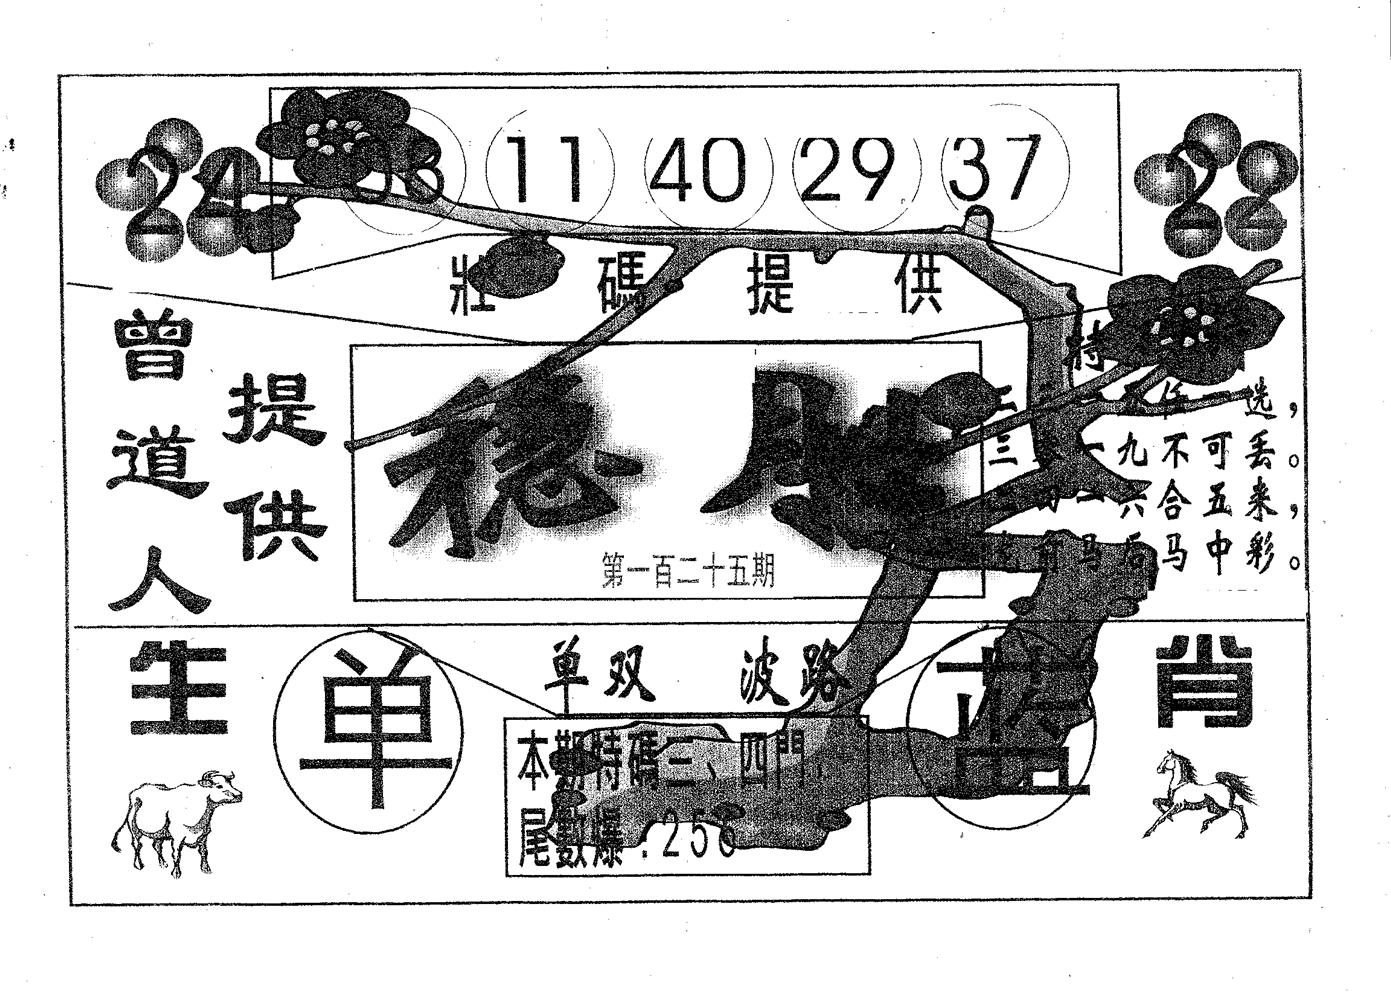 24
11 40 29 37
22
壯碼提供
曾道人
提供
稳胜
第一百二十五期
特
选，
三 一九不可丢。
一六合五来，
马后马中彩。
生
肖
单
单双 波路
蓝
本期特碼三、四門
尾數爆:256